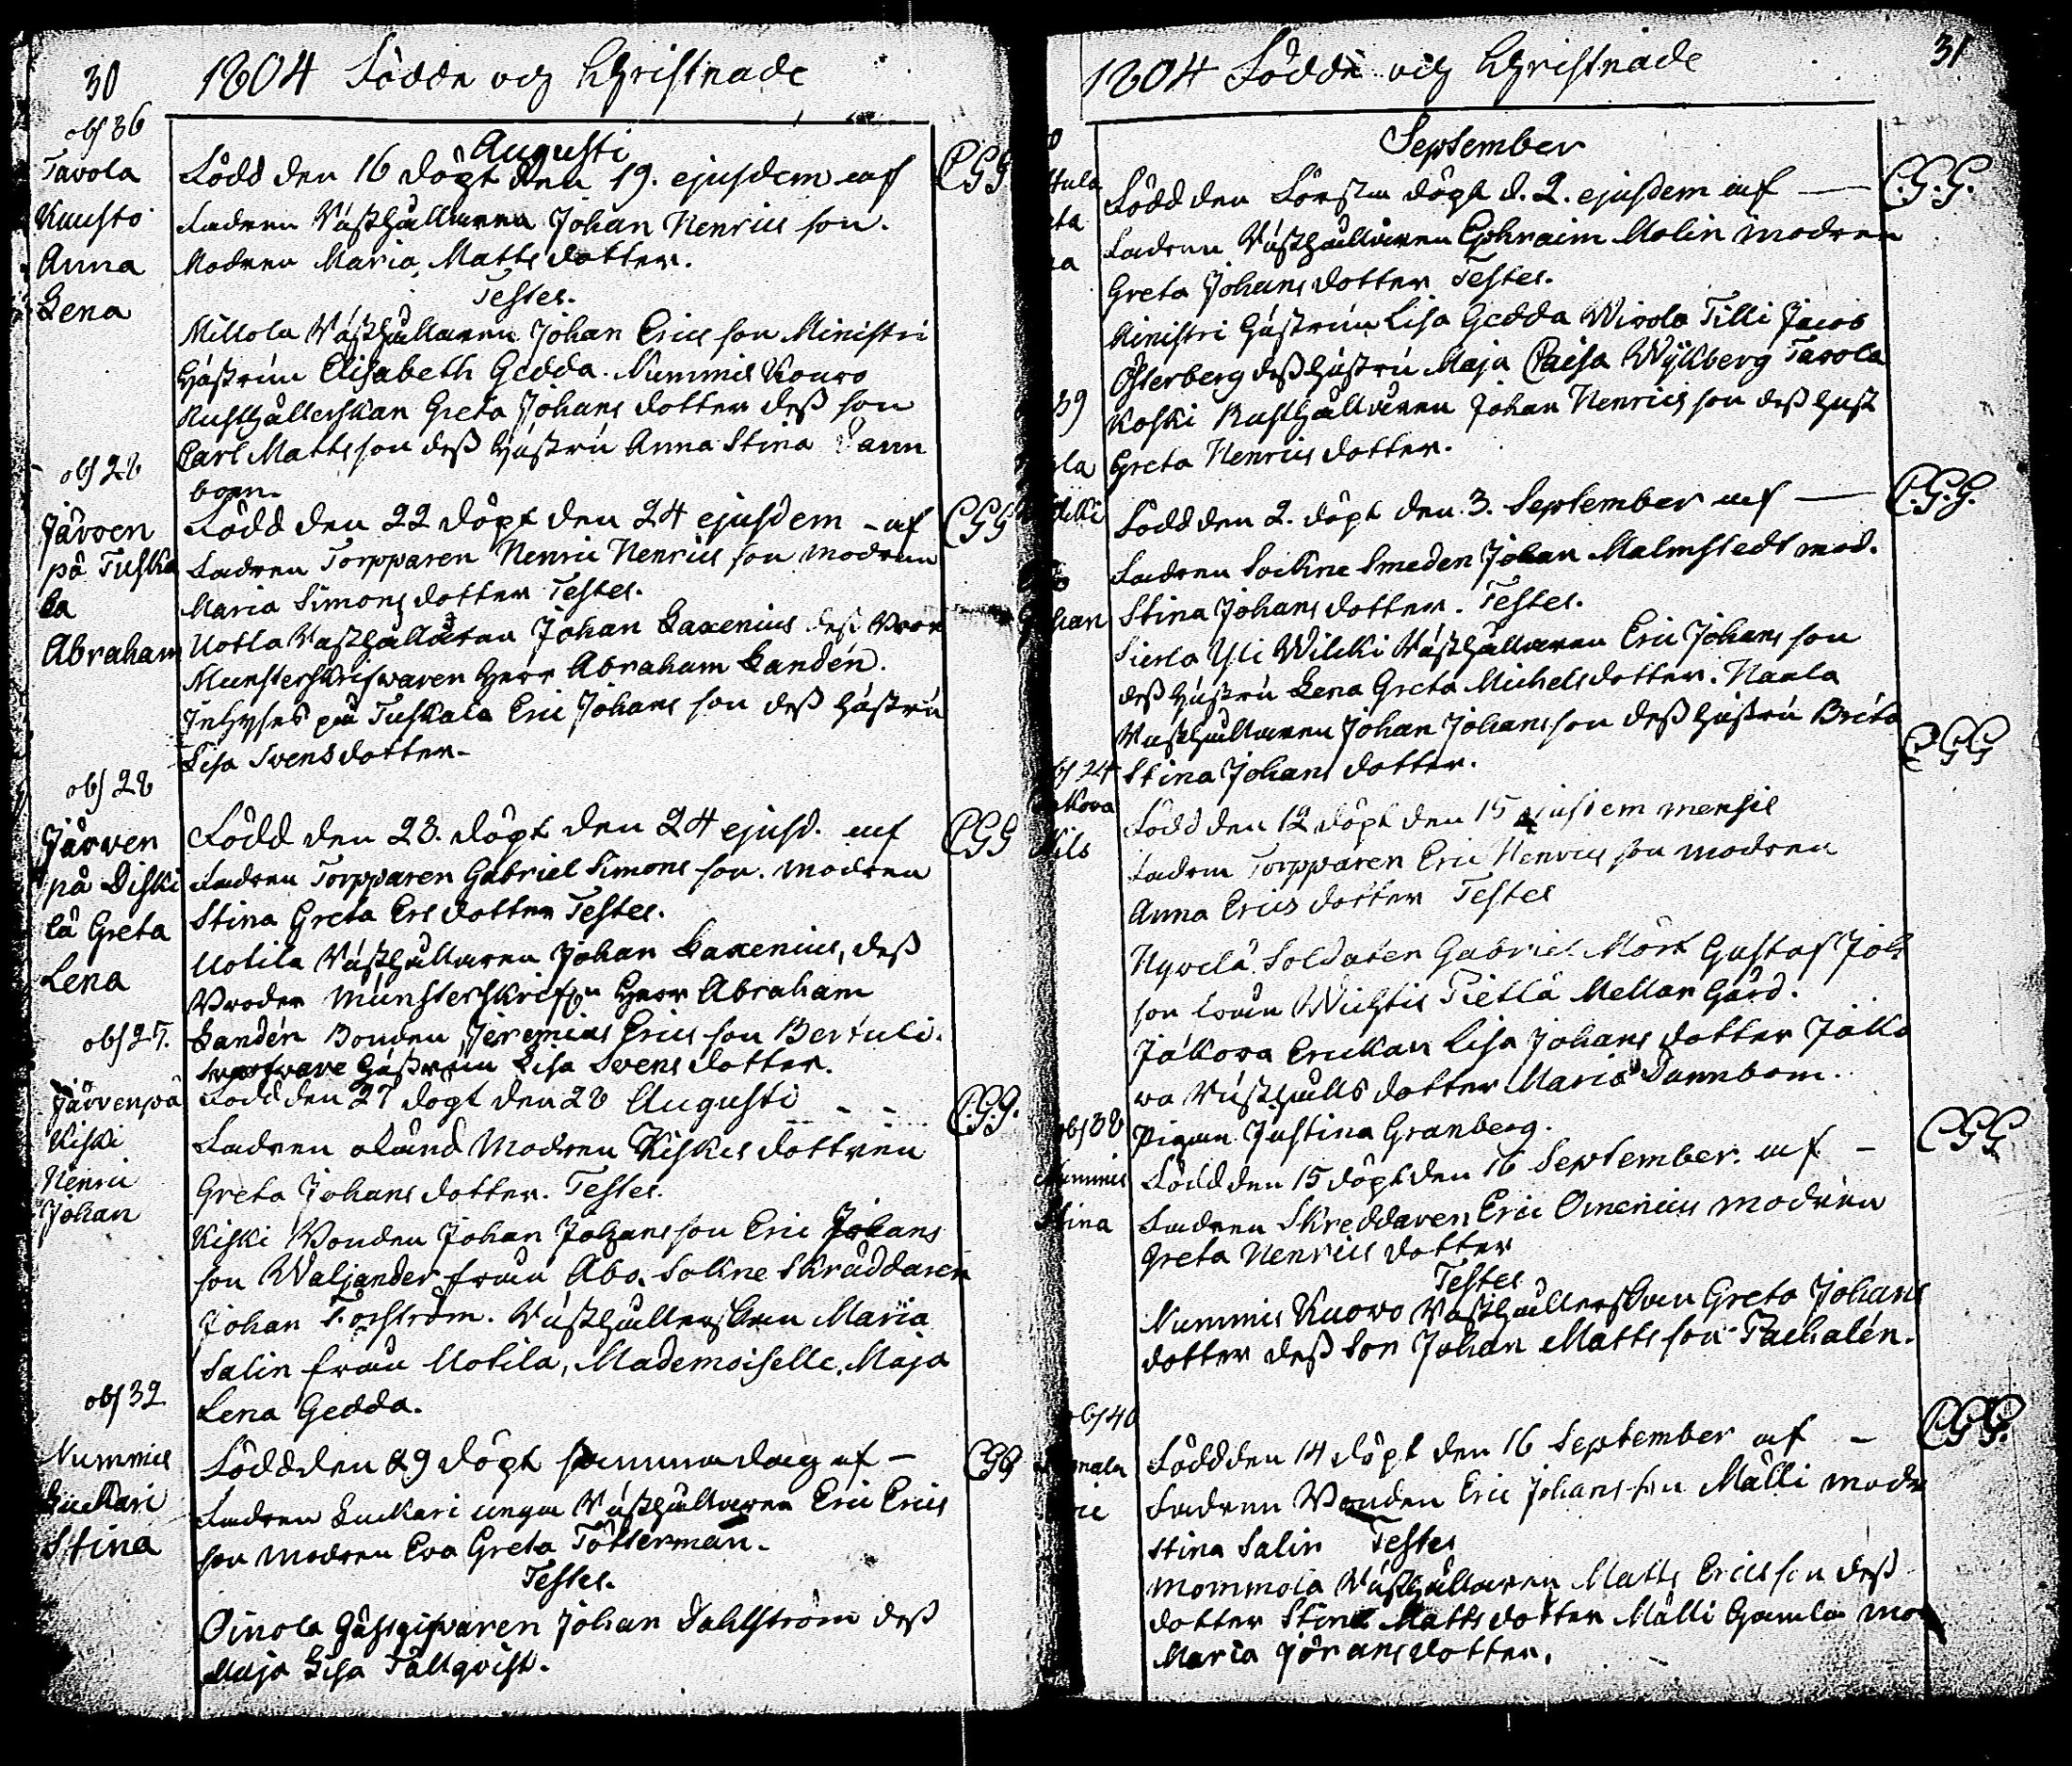 30
1804 Födde och Christnade
Augusti
obs 36
Tavola
Knusto
Anna
Lena
Född den 16 döpt den 19. ejusdem af CGG
Fadren Rusthållaren Johan Henrics son.
Modren Maria Matts dotter.
Testes.
Millola Rusthållaren Johan Erics son Ministri
Hustrun Elisabeth Gedda. Nummis Kouvo
Rusthållerskan Greta Johans dotter dess son
Carl Matts son dess Hustru Anna Stina Dann
bom.
obs 28
Järven
på Tuska
la
Abraham
Född den 22 döpt den 24 ejusdem - af CGG
Fadren Torpparen Henric Henrics son modren
Maria Simons dotter Testes.
Uotila Rusthållaren Johan Laxenius dess Bror
Munsterskrifvaren Herr Abraham Landén.
Inhyses på Tuskala Eric Johans son dess Hustru
Lisa Svens dotter-
obs 28
Järven
på Diski
lä Greta
Lena
Född den 23. döpt den 24 ejusd. af CGG
Fadren Torpparen Gabriel Simons son. modren
Stina Greta Ers dotter Testes.
Uotila Rusthållaren Johan Laxenius, dess
Broder Munsterskrifvn Herr Abraham
Landén Bonden Jeremias Erics son Bertuli.
Hustrun Lisa Svens dotter.
obs 25.
Järvenpä
Kiski
Henric
Johan
Född den 27 döpt den 28 Augusti - - C.G.G.
Fadren okänd Modren Kiskis dottren
Greta Johans dotter. Testes.
Kiski Bonden Johan Johans son Eric Johans
son Waljander från Åbo. Sokne Skräddaren
Johan Forsström. Rusthållerskan Maria
Salin från Uotila, Mademoiselle Maja
Lena Gedda.
obs 32
Nummis
Luckari
Stina
Född den 29 döpt samma dag af - CGG
Fadren Luckari unga Rusthållaren Eric Erics
son modren Eva Greta Tötterman.
Testes.
Oinola Gästgifvaren Johan Dahlström dess
Maja Lisa Tallqvist.
31
1804 Födde och Christnade
September
Född den Första döpt d. 2. ejusdem af — C.G.G.
Fadren Rusthållaren Ephraim Molin modren
Greta Johans dotter Testes.
Ministri Hustrun Lisa Gedda Wirola Tilli Jacob
Österberg dess Hustru Maja Caisa Wykberg Tavola
Koski Rusthållaren Johan Henrics son dess Hust
Greta Henrics dotter.
39
Född den 2. döpt den 3. September af — C.G.G.
Fadren Sockne Smeden Johan Malmstedt mod.
Stina Johans dotter. Testes.
Yli Wilcki Rusthållaren Eric Johans son
dess Hustru Lena Greta Michels dotter. Naala
Rusthållaren Johan Johans son dess Hustru Brita
Stina Johans dotter.
obs 24
Nils
Född den 12 döpt den 15 ejusdem mensis CGG
Fadren Torpparen Eric Henrics son modren
Anna Erics dotter Testes
Soldaten Gabriel Mört Gustaf Joh
son från Wichtis Tietlä Mellan Gård.
Jäkova Enckan Lisa Johans dotter Jäko
va Rusthålls dotter Maria Dannbom.
Pigan Justina Granberg.
obs 38
Nummis
Stina
Född den 15 döpt den 16 September. af - CGG
Fadren Skreddaren Eric Omenius modren
Greta Henrics dotter
Testes
Nummis Kuovo Rusthållerskan Greta Johans
dotter dess Son Johan Matts son Tackalén.
obs 40
Född den 14 döpt den 16 September af - CGG.
Fadren Bonden Eric Johans son Mälli modr
Stina Salin Testes
Mommola Rusthållaren Matts Erics son dess
dotter Stina Matts dotter Mälli Gamla mo
Maria Jörans dotter.